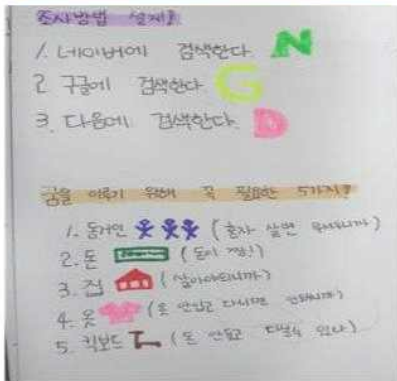 조사방법 설계!
1. 네이버에 검색한다. N
2 구글에 검색한다 G
3. 다음에 검색한다. D
꿈을 이루기 위해 꼭 필요한 5가지!
1. 동거인 (혼자 살면 무서우니까)
2. 돈 (돈이 짱!)
3. 집 (살아야되니까)
4. 옷 (옷 안입고 다니면 안되니까)
5. 킥보드 (돈 안들고 다닐 수 있다)